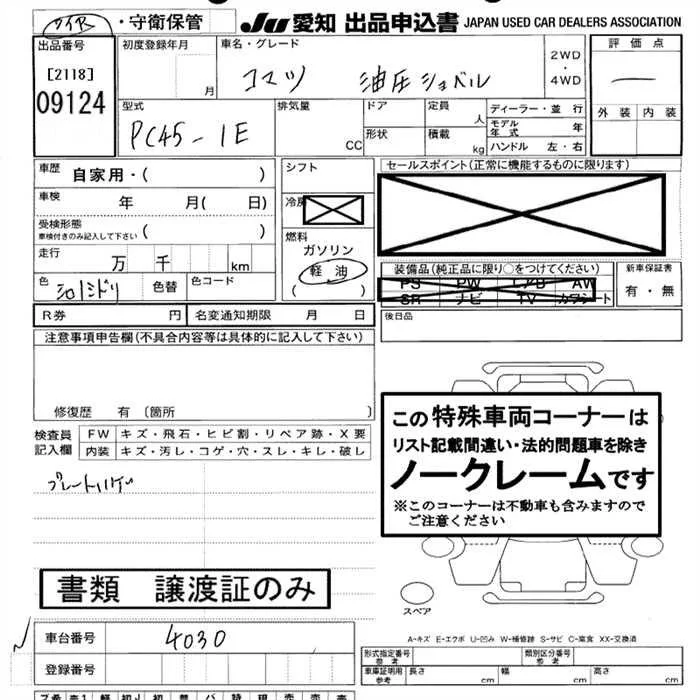 ・守衛保管 JU 愛知 出品申込書 JAPAN USED CAR DEALERS ASSOCIATION
出品番号 初度登録年月 車名・グレード 2WD・4WD 評価点
[2118] 月 コマツ 油圧ショベル
09124 型式 排気量 ドア 定員 人 ディーラー・並行 外装 内装
PC45-1E CC 形状 積載 kg モデル年式 年
ハンドル 左・右
車歴 自家用・( ) シフト セールスポイント(正常に機能するものに限ります)
車検 年 月( 日) 冷房
受検形態 ( )
車検付きのみ記入して下さい
燃料
走行 万 千 km ガソリン 装備品(純正品に限り○をつけてください) 新車保証書
軽油 PS PW エアB AW 有・無
色 シロ/ミドリ 色替 色コード ( ) SR ナビ TV カワシート
R券 円 名変通知期限 月 日 後日品
注意事項申告欄(不具合内容等は具体的に記入して下さい)
修復歴 有〔箇所 〕
この特殊車両コーナーは
リスト記載間違い・法的問題車を除き
ノークレームです
※このコーナーは不動車も含みますので
ご注意ください
検査員 FW キズ・飛石・ヒビ割・リペア跡・X要
記入欄 内装 キズ・汚し・コゲ・穴・スレ・キレ・破し
プレートハゲ
書類 譲渡証のみ
スペア
A-キズ E-エクボ U-凹み W-補修跡 S-サビ C-腐食 XX-交換済
車台番号 4030
登録番号
形式指定番号 参考 類別区分番号 参考
車庫証明用 参考 長さ cm 幅 cm 高さ cm